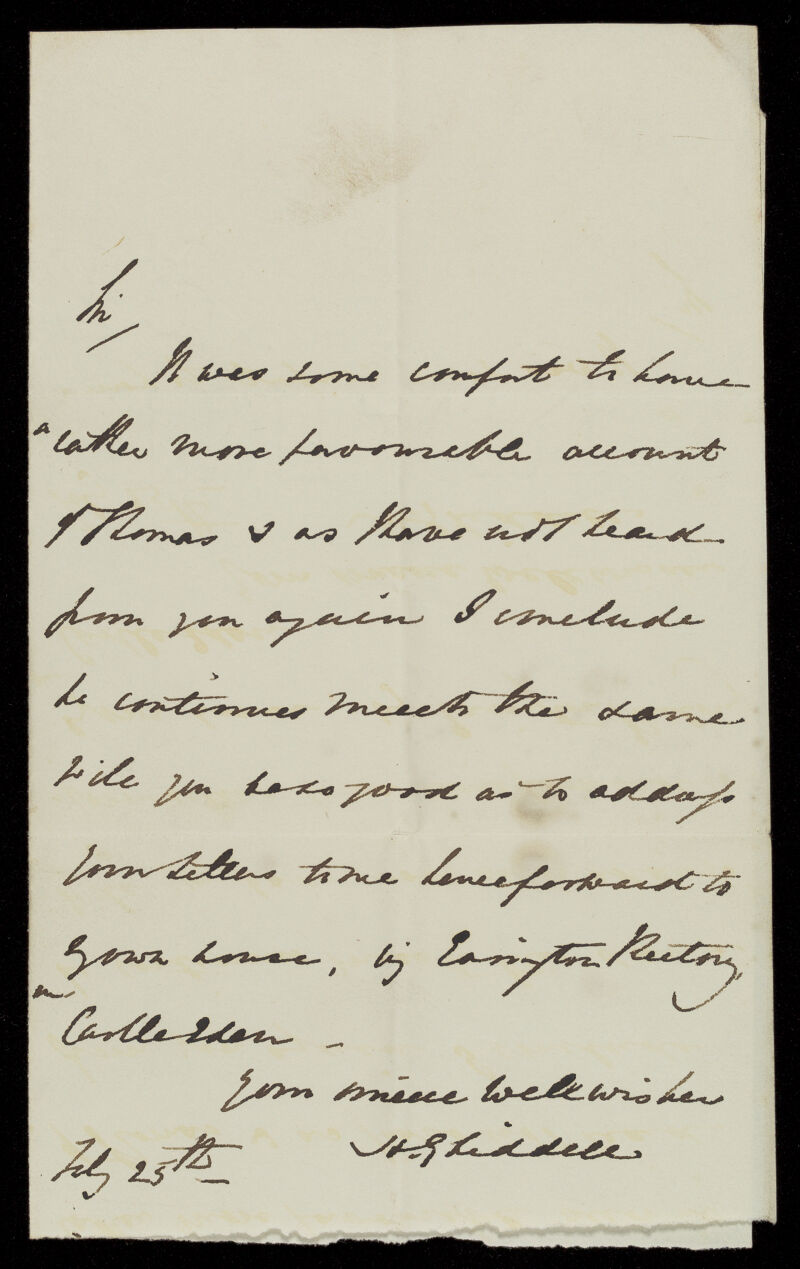 Sir/
It was some comfort to have
a rather more favourable account
of Thomas & as I have not heard
from you again I conclude
he continues much the same
Will you be so good as to address
your letters to me henceforward to
my own house, viz Easington Rectory,
Castle Eden -
Your sincere Well wisher
H. G Liddell
Feby 25th